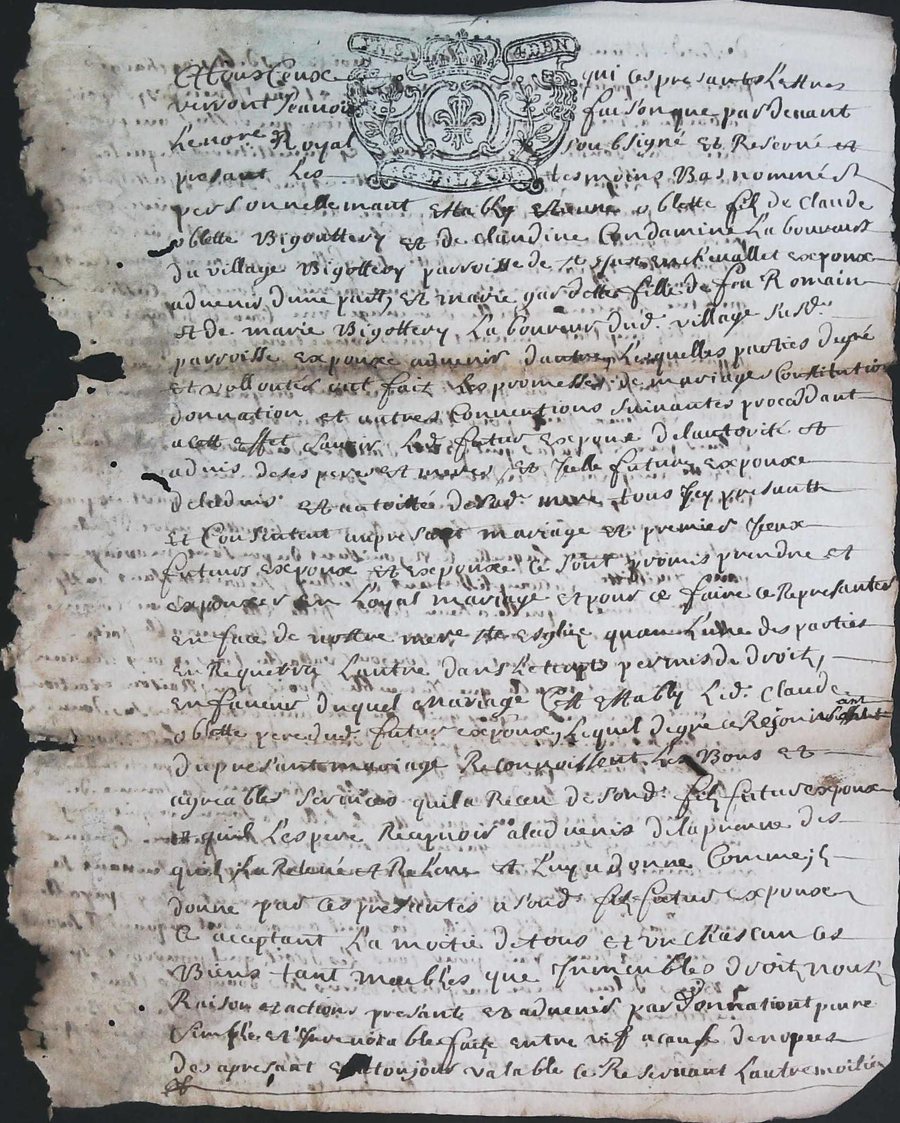 INE 4 DEN
G. D. LYON
A tous Ceux qui ces presantes Lettres
verront scavoir faisons que pardevant
Le nore Royal soubsigné et Reservé et
presant Les tesmoins Bas nommés
personnellemant estably estienne oblette filz de Claude
oblette Bigouttery et de claudine Condamine Laboureurs
du village Bigottery parroisse de st Just en chevallet expoux
advenir dune part, et marie gardette fille de feu Romain
et de marie Bigottery Laboureur dud village susd
parroisse expouxe advenir dautre, Lesquelles parties de gré
et vollontés ont fait Les promesses de mariage Constitution
donnation et autres Conventions suivantes procedant
a cett effet scavoir Led futur expoux de lautorité et
advis de ses pere et mere, et Jcelle future expouxe
de ladvis et autoitté de sad mere tous Jcy presantt
Et Constatent au presant mariage et premier Jceux
futurs expoux et expouxe ce sont promis prendre et
expouser en Loyal mariage et pour ce faire ce Representer
en face de nostre mere ste esglize quan Lune des parties
en Requerra Lautre dans Le temps permis de droit,
en faveur duquel mariage C'est estably Led Claude
oblette pere dud futur expoux, Lequel de gré ce Rejouissant
du presant mariage Reconnoissent Les Bons et
agréables services quil a Receu de sond filz futur expoux
et quil Lespere Recepvoir a ladvenir de la preuve des
quelz La Relevé et Releve et Luy a donne Comme Jl
donne par ces presantes a sond filz futur expoux
Ce acceptant La moctié de tous et un chascun ces
Biens tant meubles que Jmmeubles droit noux
Raison et actions presant et advenir par donnationt pure
simple et Jrrevocable faitte entre viff a cause de nopces
des a presant et a toujour valable ce Reservant Lautre moitié